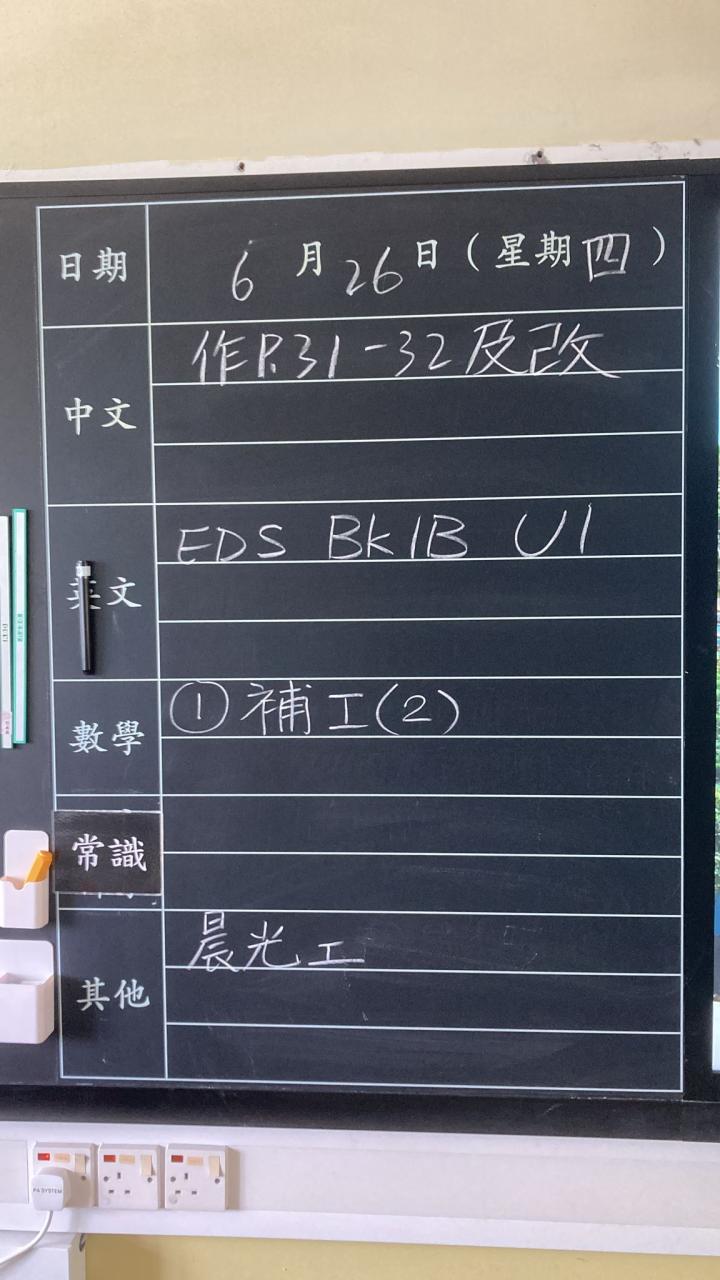 日期 6月26日（星期四）
中文 作P.31-32及改
英文 EDS BK1B U1
數學 ①補工(2)
常識
其他 晨光工
PA SYSTEM